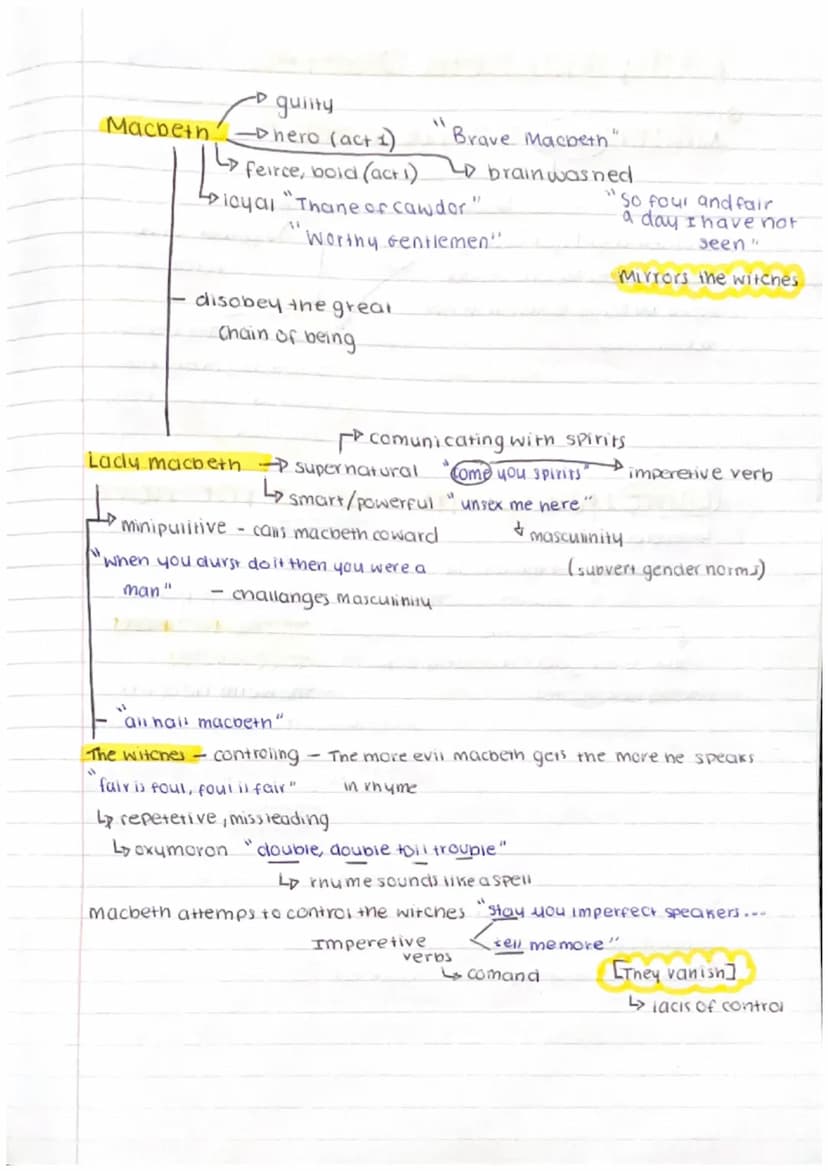 guilty
Macbeth hero (act 1) "Brave Macbeth"
feirce, bold (act 1) brainwashed
loyal "Thane of cawdor" "so foul and fair
a day I have not
"Worthy Gentlemen" seen"
Mirrors the witches
- disobey the great
chain of being
comunicating with spirits
Lady macbeth supernatural "come you spirits" imperetive verb
smart/powerful "unsex me here"
minipulitive - calls macbeth coward masculinity
"when you durst do it then you were a (subvert gender norms)
man" - challanges masculinity
- "all hail macbeth"
The witches - controling - The more evil macbeth gets the more he speaks
"fair is foul, foul is fair" in rhyme
repeterive, missleading
oxymoron "double, double toil trouble"
rhyme sounds like a spell
macbeth attemps to control the witches "stay you imperfect speakers...
Imperetive tell me more"
verbs
comand [They vanish]
lacks of control